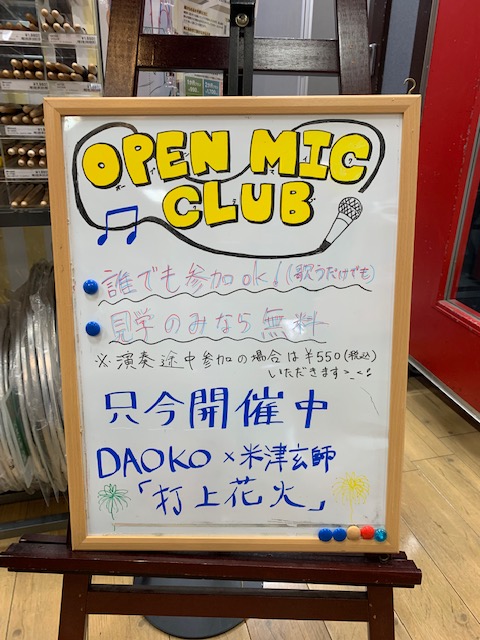 OPEN MIC
オープンマイク
CLUB
誰でも参加ok!(歌うだけでも)
見学のみなら無料
※演奏途中参加の場合は¥550(税込)
いただきます>_<
只今開催中
DAOKO×米津玄師
「打上花火」